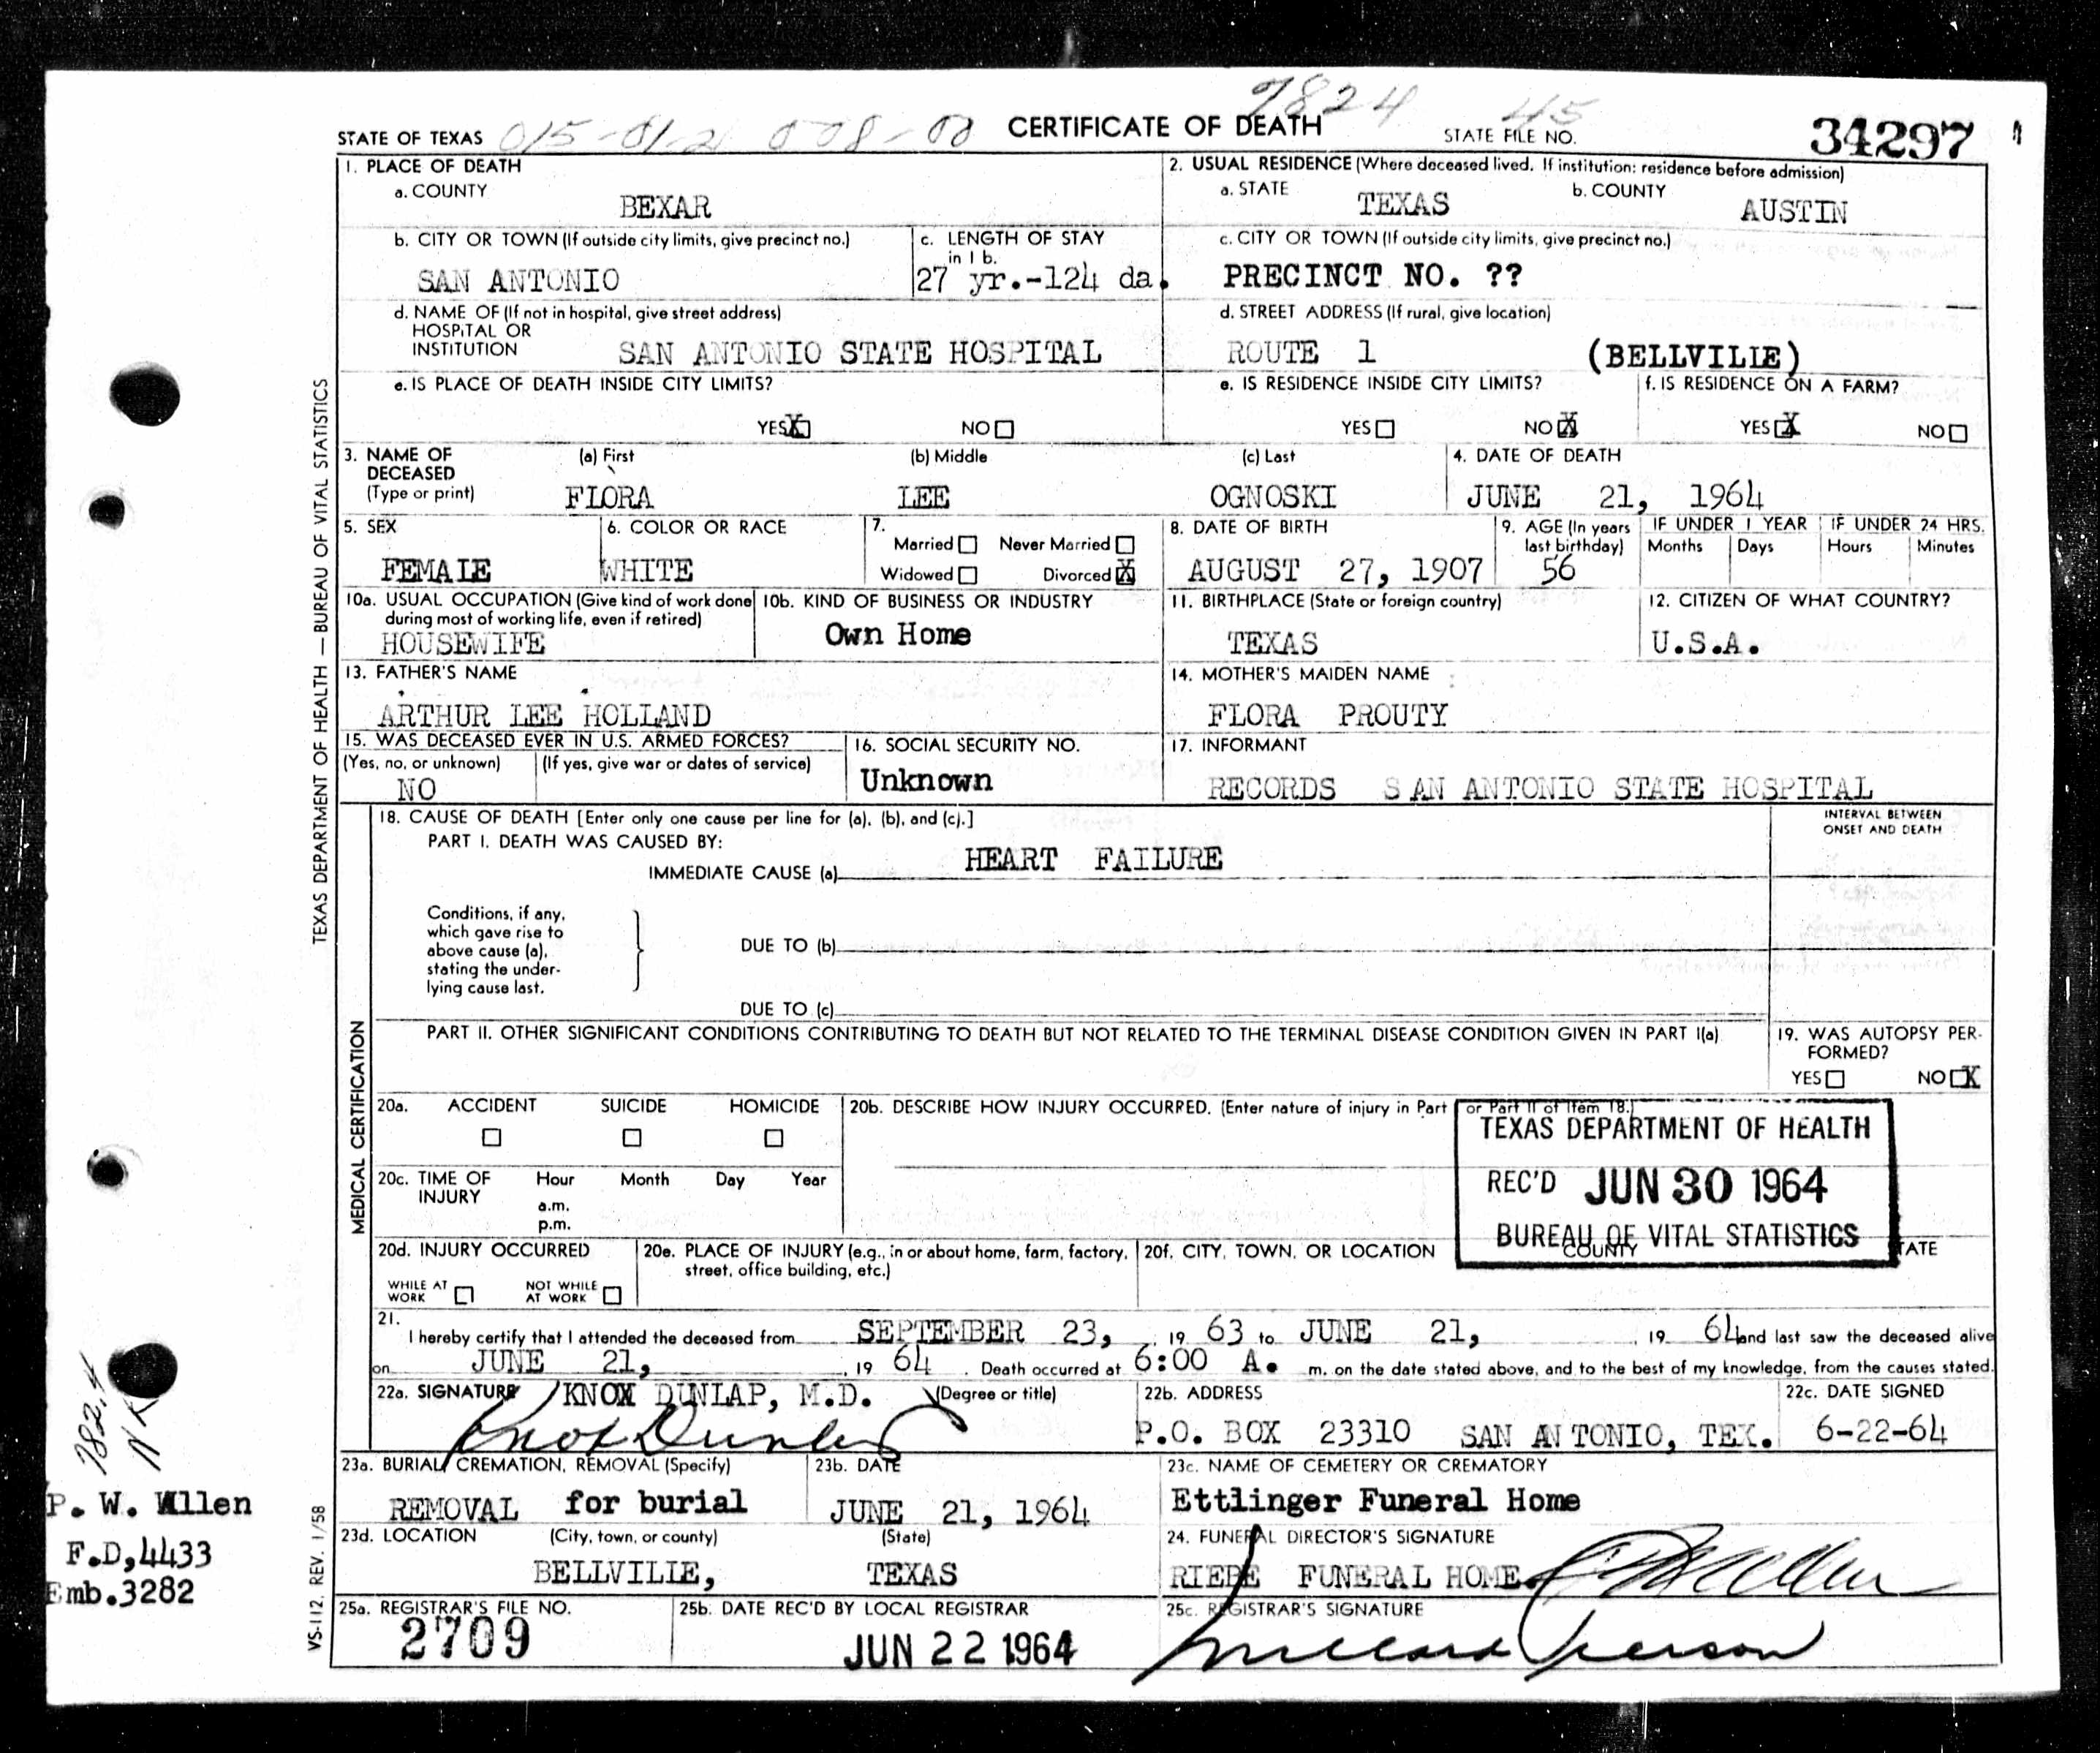 7824 45
STATE OF TEXAS CERTIFICATE OF DEATH STATE FILE NO. 34297
1. PLACE OF DEATH
a. COUNTY
BEXAR
2. USUAL RESIDENCE (Where deceased lived. If institution: residence before admission)
a. STATE b. COUNTY
TEXAS AUSTIN
b. CITY OR TOWN (If outside city limits, give precinct no.)
SAN ANTONIO
c. LENGTH OF STAY
in 1 b.
27 yr.-124 da.
c. CITY OR TOWN (If outside city limits, give precinct no.)
PRECINCT NO. ??
d. NAME OF (If not in hospital, give street address)
HOSPITAL OR
INSTITUTION SAN ANTONIO STATE HOSPITAL
d. STREET ADDRESS (If rural, give location)
ROUTE 1 (BELLVILIE)
e. IS PLACE OF DEATH INSIDE CITY LIMITS?
YES X NO
e. IS RESIDENCE INSIDE CITY LIMITS?
YES NO X
f. IS RESIDENCE ON A FARM?
YES X NO
3. NAME OF DECEASED (Type or print)
(a) First (b) Middle (c) Last
FLORA LEE OGNOSKI
4. DATE OF DEATH
JUNE 21, 1964
5. SEX
FEMAIE
6. COLOR OR RACE
WHITE
7.
Married Never Married
Widowed Divorced X
8. DATE OF BIRTH
AUGUST 27, 1907
9. AGE (In years
last birthday)
56
IF UNDER 1 YEAR
Months Days
IF UNDER 24 HRS.
Hours Minutes
10a. USUAL OCCUPATION (Give kind of work done
during most of working life, even if retired)
HOUSEWIFE
10b. KIND OF BUSINESS OR INDUSTRY
Own Home
11. BIRTHPLACE (State or foreign country)
TEXAS
12. CITIZEN OF WHAT COUNTRY?
U.S.A.
13. FATHER'S NAME
ARTHUR LEE HOLLAND
14. MOTHER'S MAIDEN NAME
FLORA PROUTY
15. WAS DECEASED EVER IN U.S. ARMED FORCES?
(Yes, no, or unknown) (If yes, give war or dates of service)
NO
16. SOCIAL SECURITY NO.
Unknown
17. INFORMANT
RECORDS SAN ANTONIO STATE HOSPITAL
18. CAUSE OF DEATH [Enter only one cause per line for (a), (b), and (c).]
PART I. DEATH WAS CAUSED BY:
IMMEDIATE CAUSE (a) HEART FAILURE
INTERVAL BETWEEN
ONSET AND DEATH
Conditions, if any,
which gave rise to
above cause (a),
stating the under-
lying cause last.
DUE TO (b)
DUE TO (c)
PART II. OTHER SIGNIFICANT CONDITIONS CONTRIBUTING TO DEATH BUT NOT RELATED TO THE TERMINAL DISEASE CONDITION GIVEN IN PART I(a)
19. WAS AUTOPSY PER-
FORMED?
YES NO X
20a. ACCIDENT SUICIDE HOMICIDE
20b. DESCRIBE HOW INJURY OCCURRED. (Enter nature of injury in Part I or Part II of Item 18.)
TEXAS DEPARTMENT OF HEALTH
REC'D JUN 30 1964
BUREAU OF VITAL STATISTICS
20c. TIME OF
INJURY
Hour Month Day Year
a.m.
p.m.
20d. INJURY OCCURRED
WHILE AT
WORK
NOT WHILE
AT WORK
20e. PLACE OF INJURY (e.g., in or about home, farm, factory,
street, office building, etc.)
20f. CITY, TOWN, OR LOCATION COUNTY STATE
21.
I hereby certify that I attended the deceased from SEPTEMBER 23, 19 63 to JUNE 21, 19 64 and last saw the deceased alive
on JUNE 21, 19 64. Death occurred at 6:00 A. m. on the date stated above, and to the best of my knowledge, from the causes stated.
22a. SIGNATURE KNOX DUNLAP, M.D. (Degree or title)
Knox Dunlap
22b. ADDRESS
P.O. BOX 23310 SAN ANTONIO, TEX.
22c. DATE SIGNED
6-22-64
23a. BURIAL, CREMATION, REMOVAL (Specify)
REMOVAL for burial
23b. DATE
JUNE 21, 1964
23c. NAME OF CEMETERY OR CREMATORY
Ettlinger Funeral Home
23d. LOCATION (City, town, or county) (State)
BELLVILIE, TEXAS
24. FUNERAL DIRECTOR'S SIGNATURE
RIEBE FUNERAL HOME. P W Allen
25a. REGISTRAR'S FILE NO.
2709
25b. DATE REC'D BY LOCAL REGISTRAR
JUN 22 1964
25c. REGISTRAR'S SIGNATURE
TEXAS DEPARTMENT OF HEALTH — BUREAU OF VITAL STATISTICS
MEDICAL CERTIFICATION
VS-112, REV. 1/58
782.4
NR
P. W. Allen
F.D,4433
Emb.3282